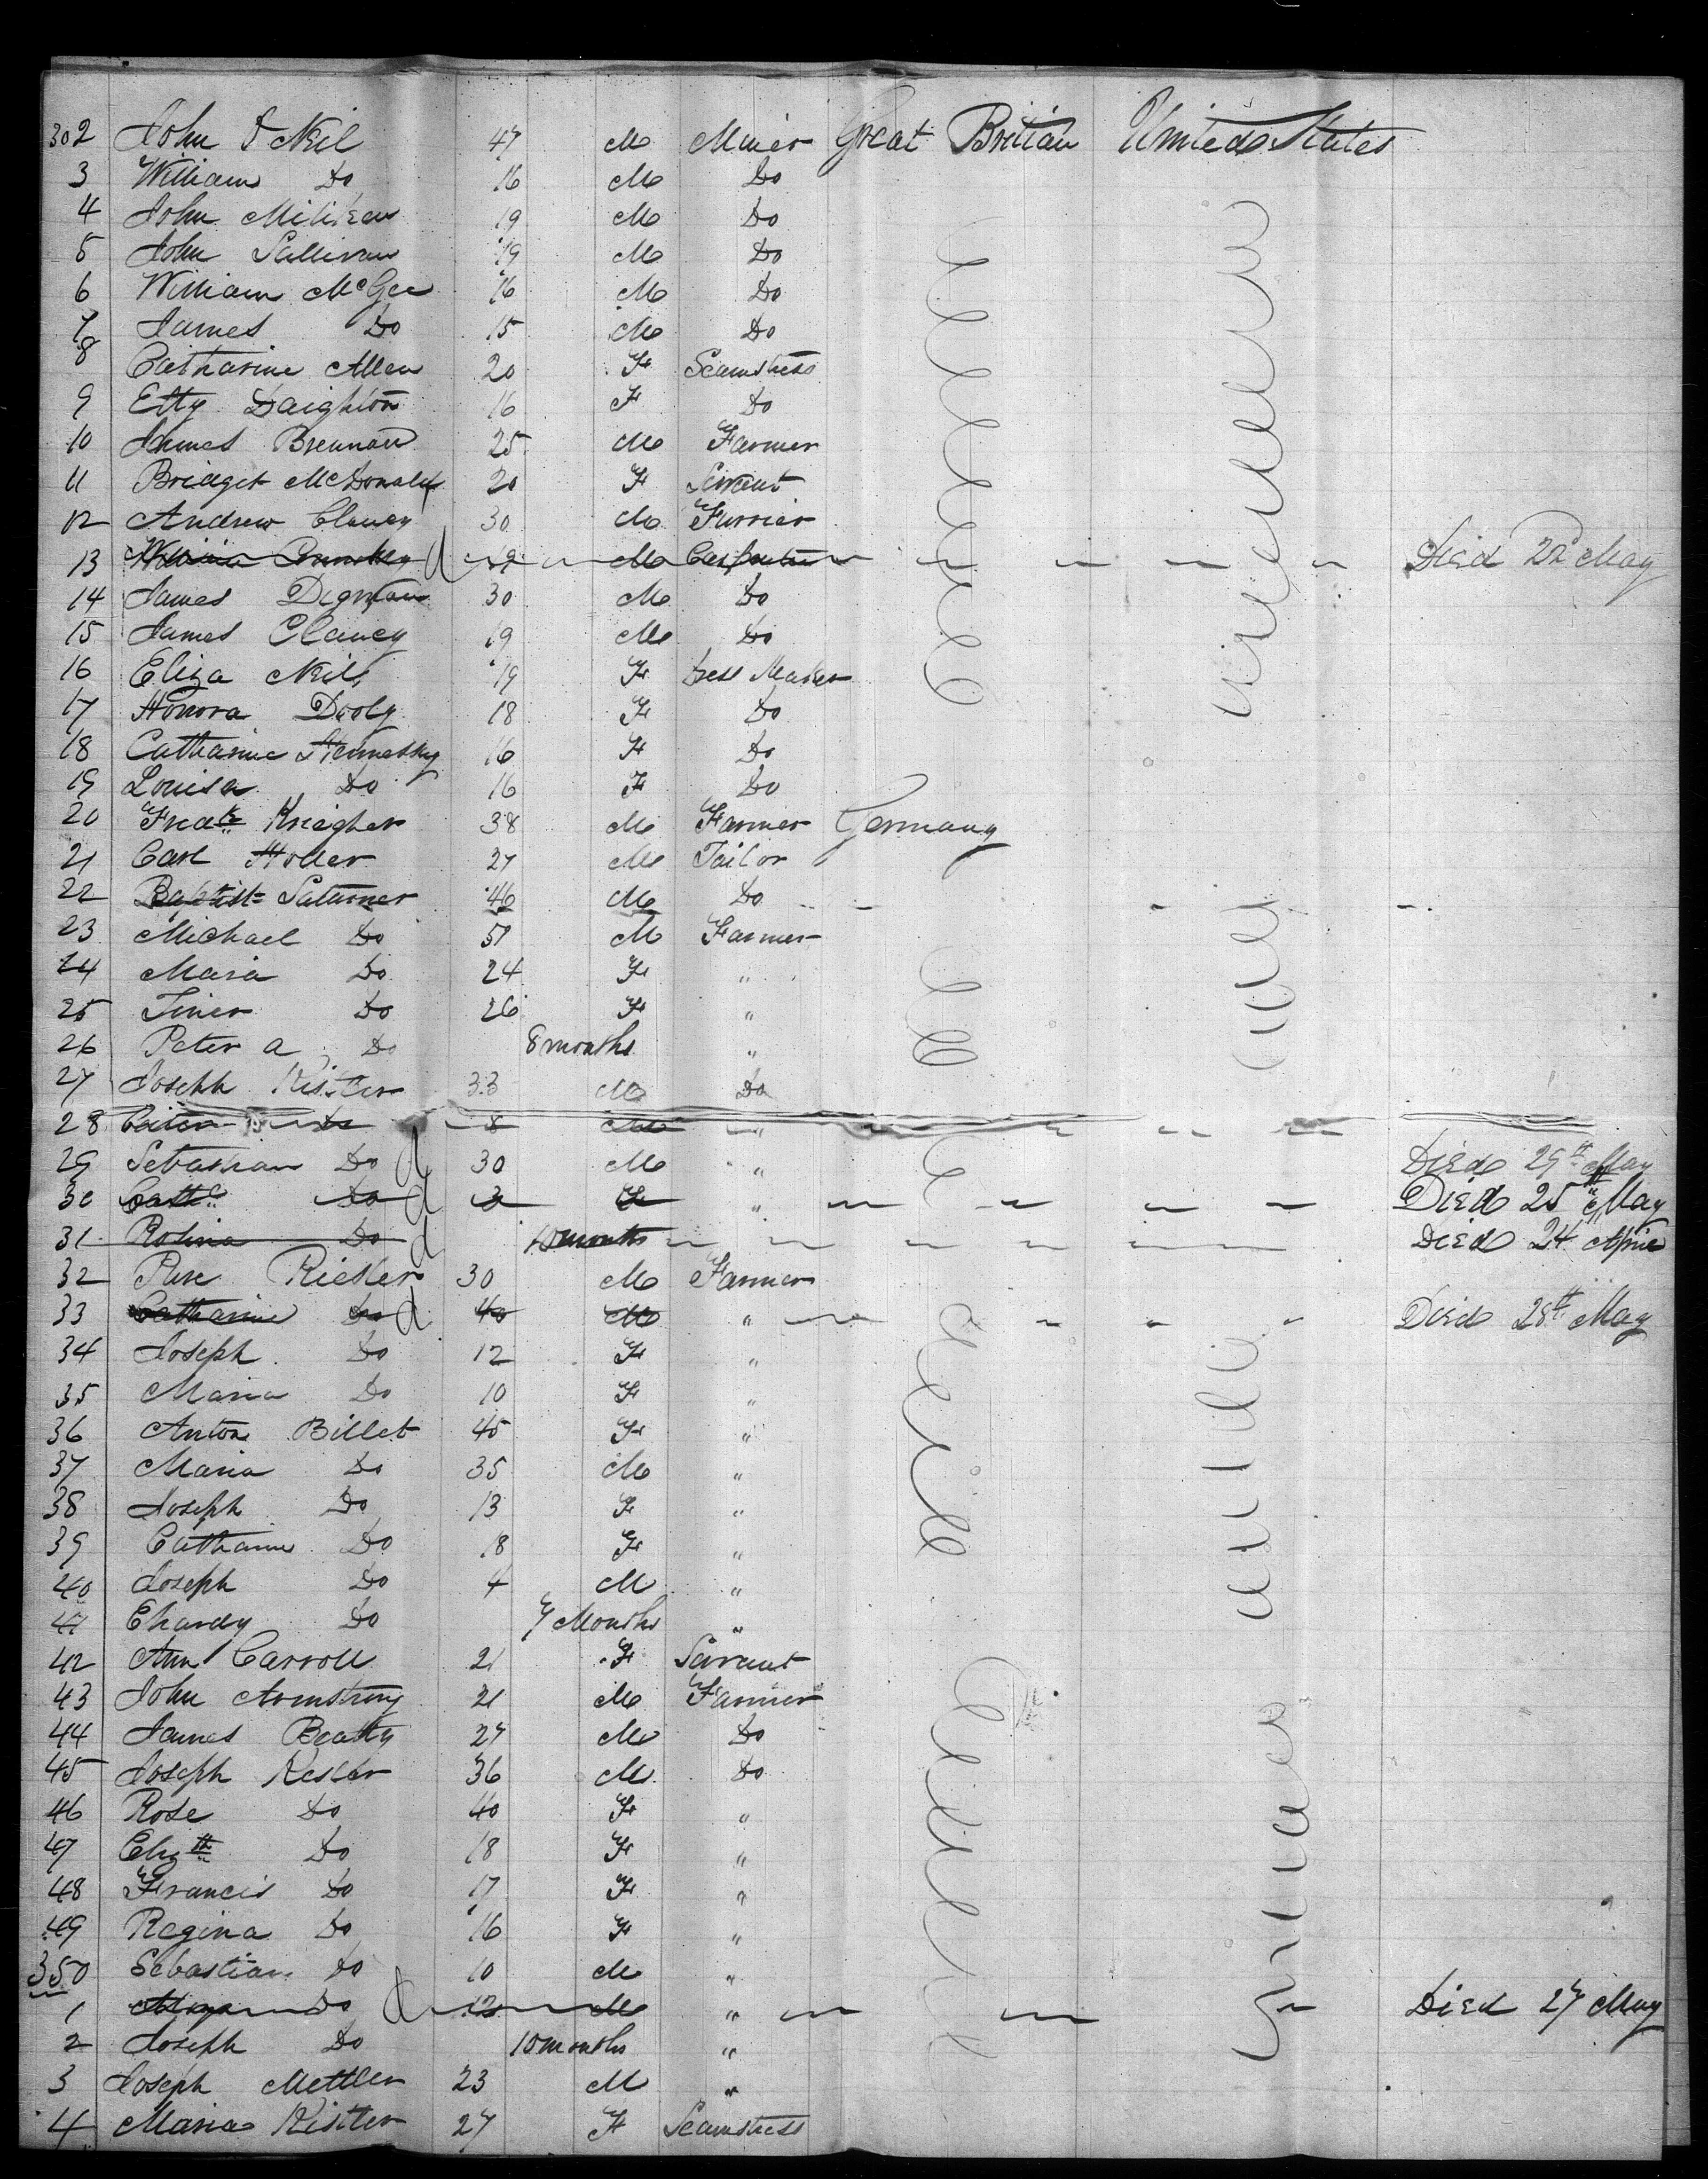 302 John O Neil 47 M Miner Great Britian United States
3 William Do 16 M Do
4 John Miliken 19 M Do
5 John Sullivan 19 M Do
6 William McGee 16 M Do
7 James Do 15 M Do
8 Catharine Allen 20 F Seamstress
9 Etty Daighton 16 F Do
10 James Brennan 25 M Farmer
11 Bridget McDonald 20 F Servent
12 Andrew Clancy 30 M Furrier
13 William 19 M Carpenter Died 22d May
14 James Dignan 30 M Do
15 James Clancy 19 M Do
16 Eliza Neil 19 F Dress Maker
17 Honora Dooly 18 F Do
18 Catharine Hennessy 16 F Do
19 Louisa Do 16 F Do
20 Fredk Kriegher 38 M Farmer Germany
21 Carl Holler 27 M Tailor
22 Baptist Saturner 46 M Do
23 Michael Do 51 M Farmer
24 Maria Do 24 F "
25 Do 26 F "
26 Peter a Do 8 months "
27 Joseph Kistler 33 M Do
28 Do 8 M "
29 Sebastian Do d 30 M " Died 29th May
30 Cath Do d 3 F " Died 25th May
31 Rosina Do d 10 months Died 24 April
32 Riesler 30 M Farmer
33 Catharine Do d 40 M " Died 28th May
34 Joseph Do 12 F "
35 Maria Do 10 F "
36 Anton Billet 45 F "
37 Maria Do 35 M "
38 Joseph Do 13 F "
39 Catharine Do 18 F "
40 Joseph Do 4 M "
41 Do 7 Months "
42 Ann Carroll 21 F Servent
43 John Armstrong 21 M Farmer
44 James Beatty 27 M Do
45 Joseph Kesler 36 M Do
46 Rose Do 40 F "
47 Elizth Do 18 F "
48 Francis Do 17 F "
49 Regina Do 16 F "
350 Sebastian Do 10 M "
1 Do d 12 M " Died 27 May
2 Joseph Do 10 months "
3 Joseph Mettler 23 M "
4 Maria Kistler 27 F Seamstress